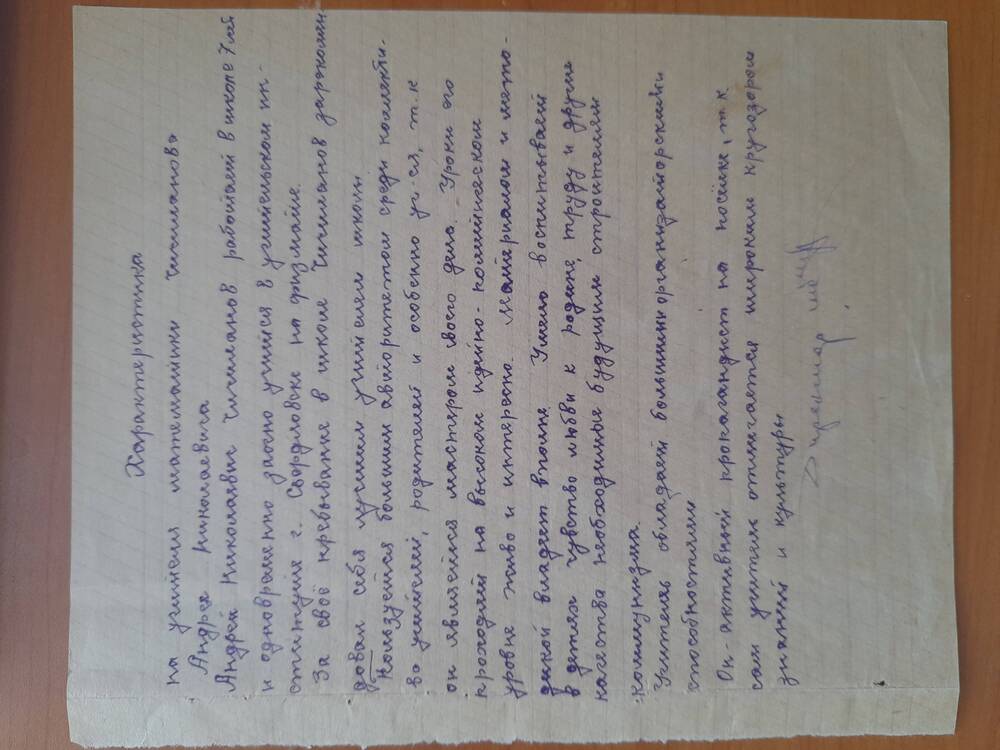 Характеристика
на учителя математики Чичиланова
Андрея Николаевича
Андрей Николаевич Чичиланов работает в школе 7 лет
и одновременно заочно учится в учительском ин-
ституте г. Свердловске на физмате.
За своё пребывание в школе Чичиланов зарекомен-
довал себя лучшим учителем школы
Пользуется большим авторитетом среди коллекти-
ва учителей, родителей и особенно уч-ся, т.к
он является мастером своего дела. Уроки его
проходят на высоком идейно-политическом
уровне живо и интересно. Материалом и мето-
дикой владеет вполне. Умело воспитывает
в детях чувство любви к родине, труду и другие
качества необходимые будущим строителям
коммунизма.
Учитель обладает большими организаторскими
способностями
Он-активный пропагандист на посёлке, т.к.
сам учитель отличается широким кругозором
знаний и культуры
Директор